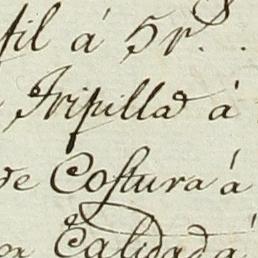 fil á 5 r.^s
Tripillas á
de Costura á
Calidad á